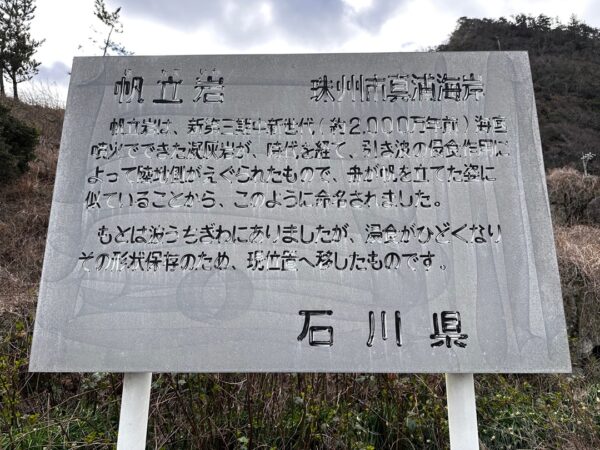 帆立岩 珠州市真浦海岸
帆立岩は、新第三紀中新世代(約2,000万年前)海底
噴火でできた凝灰岩が、時代を経て、引き波の侵食作用に
よって陸地側がえぐられたもので、舟が帆を立てた姿に
似ていることから、このように命名されました。
もとは波うちぎわにありましたが、浸食がひどくなり
その形状保存のため、現位置へ移したものです。
石川県